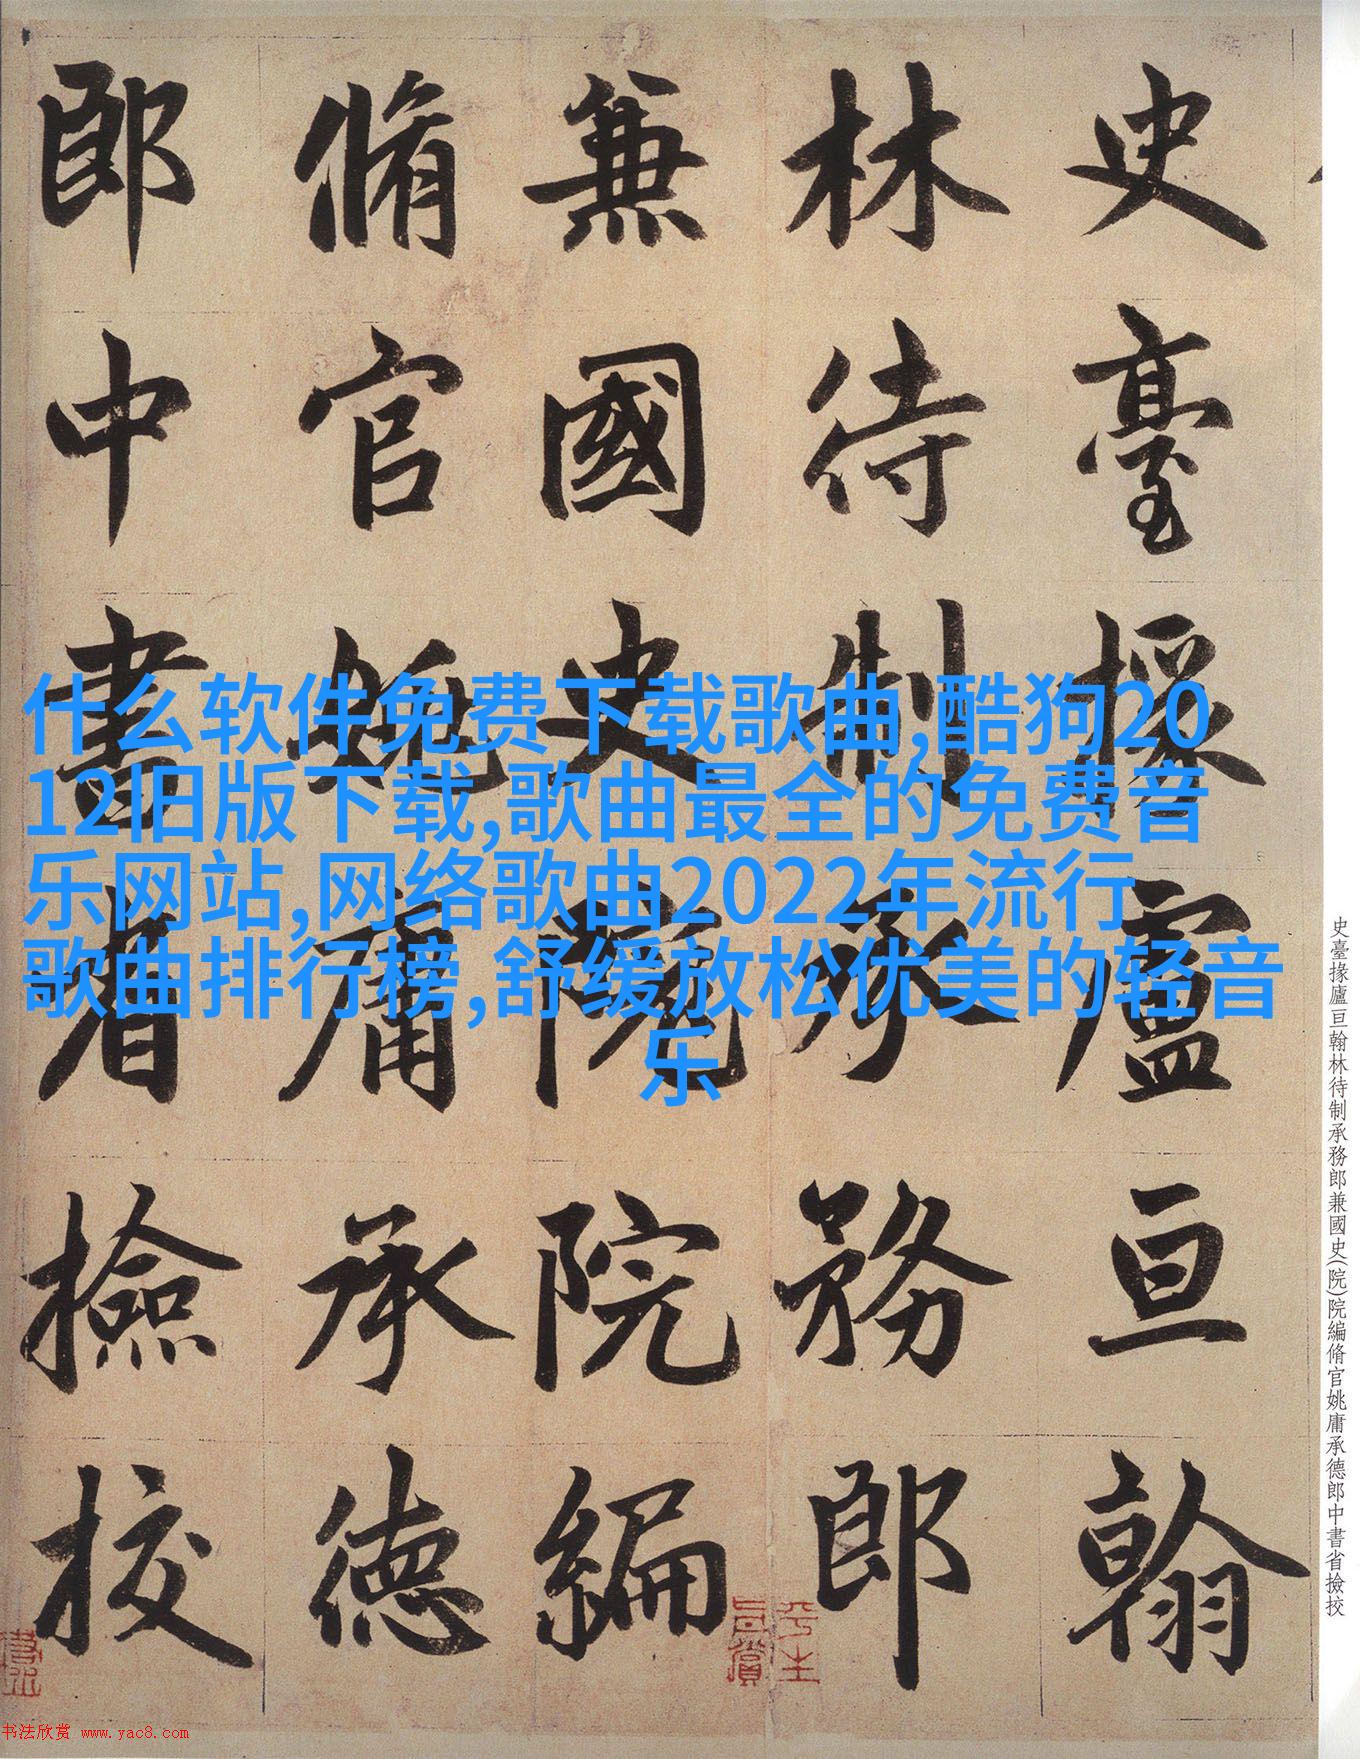 史臺掾盧亘翰
林待制承務郎
兼國史院院編
脩官姚庸承德
郎中書省檢校
什么软件免费下载歌曲,酷狗20
12旧版下载,歌曲最全的免费音
乐网站,网络歌曲2022年流行
歌曲排行榜,舒缓放松优美的轻音
乐
史臺掾廬亘翰林待制承務郎兼國史(院)院編脩官姚庸承德郎中書省撿挍
书法欣赏 www.yac8.com